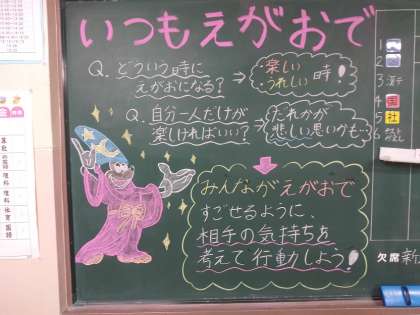 いつもえがおで
Q. どういう時に
えがおになる?
⇒
楽しい
うれしい 時!
Q. 自分一人だけが
楽しければいい?
⇒
だれかが
悲しい思いかも…
みんながえがおで
すごせるように、
相手の気持ちを
考えて行動しよう!
1
2
3
4 国
5 社
6
欠席